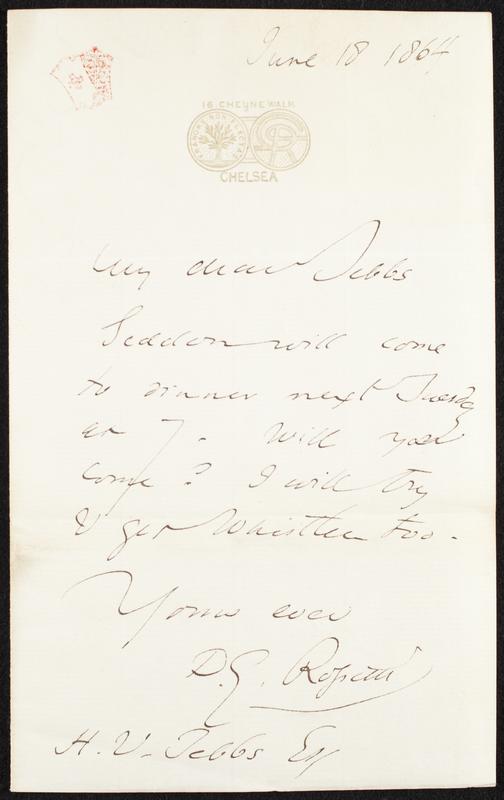 June 18 1864
16 CHEYNE WALK
FRANGAS NON FLECTAS
CHELSEA
My dear Tebbs
Seddon will come
to dinner next Tuesday
at 7. Will you
come? I will try
& get Whistler too.
Yours ever
D. G. Rossetti
H. V. Tebbs Esq